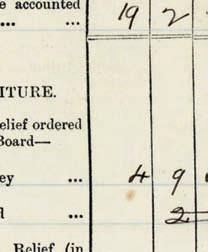 e accounted
... ... 19 2
ITURE.
elief ordered
Board—
ey ... 4 9
d ... 2
Relief (in